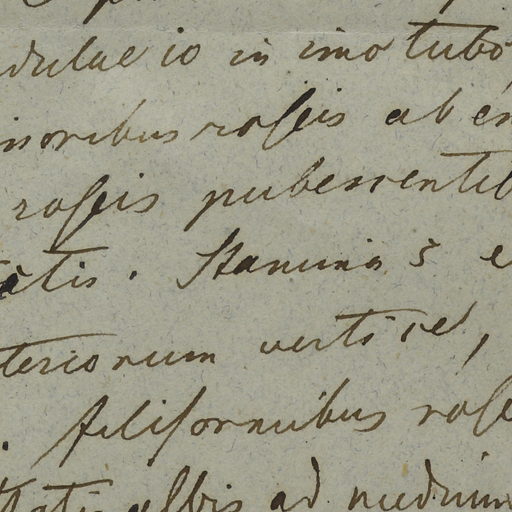 dulae 10 in imo tubo,
inoribus roseis ab
roseis pubescentib
atis. Stamina 5 e
teriorum vertice,
. filiformibus rose
tatis albis ad medium